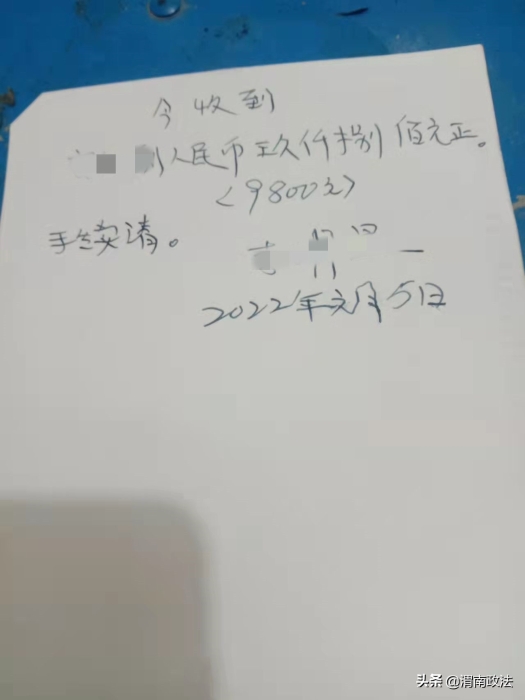 今收到
人民币玖仟捌佰元正。
(9800元)
手续清。
2022年元月5日
头条 @渭南政法